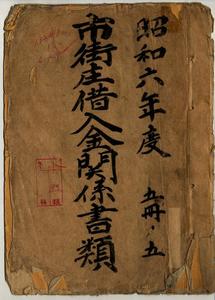 昭和六年度
五冊ノ五
市街庄借入金関係書類